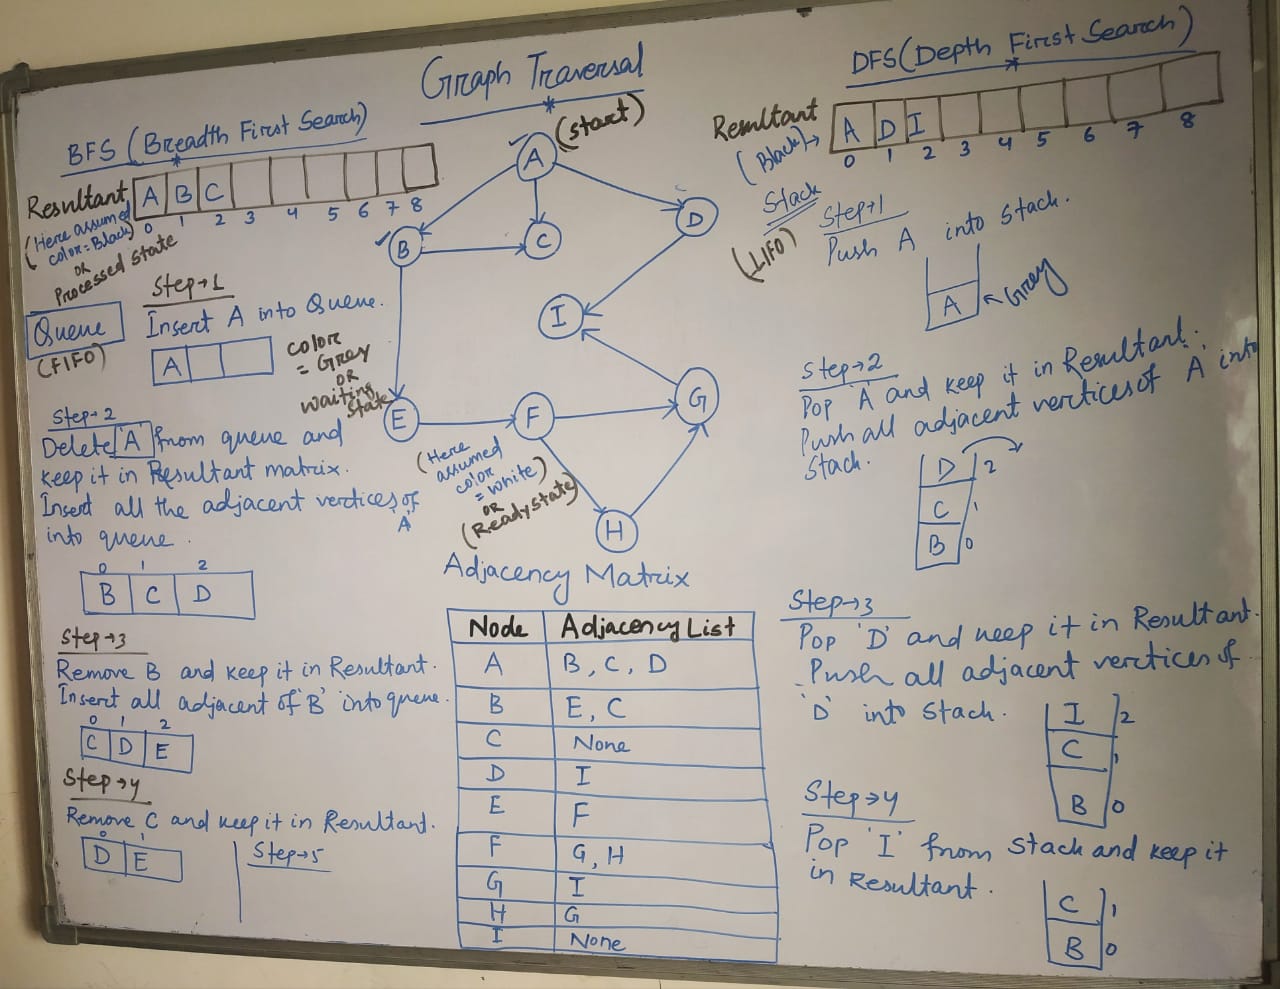 Graph Traversal
BFS (Breadth First Search)
Resultant
A B C
0 1 2 3 4 5 6 7 8
(Here assumed
color=Black)
OR
Processed state
Queue
(FIFO)
Step→1
Insert A into Queue.
A
color
= Grey
OR
waiting
state
Step→2
Delete 'A' from queue and
keep it in Resultant matrix.
Insert all the adjacent vertices of
'A'
into queue.
0 1 2
B C D
Step→3
Remove B and keep it in Resultant.
Insert all adjacent of 'B' into queue.
0 1 2
C D E
Step→4
Remove C and keep it in Resultant.
0 1
D E
Step→5
(start)
A
B
C
D
I
E
F
G
H
(Here
assumed
color
= white)
OR
(Ready state)
Adjacency Matrix
Node Adjacency List
A B, C, D
B E, C
C None
D I
E F
F G, H
G I
H G
I None
DFS (Depth First Search)
Resultant
(Black)→
A D I
0 1 2 3 4 5 6 7 8
Stack
(LIFO)
Step→1
Push A into stack.
A
Grey
Step→2
Pop 'A' and keep it in Resultant.
Push all adjacent vertices of 'A' into
stack.
D 2
C 1
B 0
Step→3
Pop 'D' and keep it in Resultant.
Push all adjacent vertices of
'D' into stack.
I 2
C 1
B 0
Step→4
Pop 'I' from stack and keep it
in Resultant.
C 1
B 0